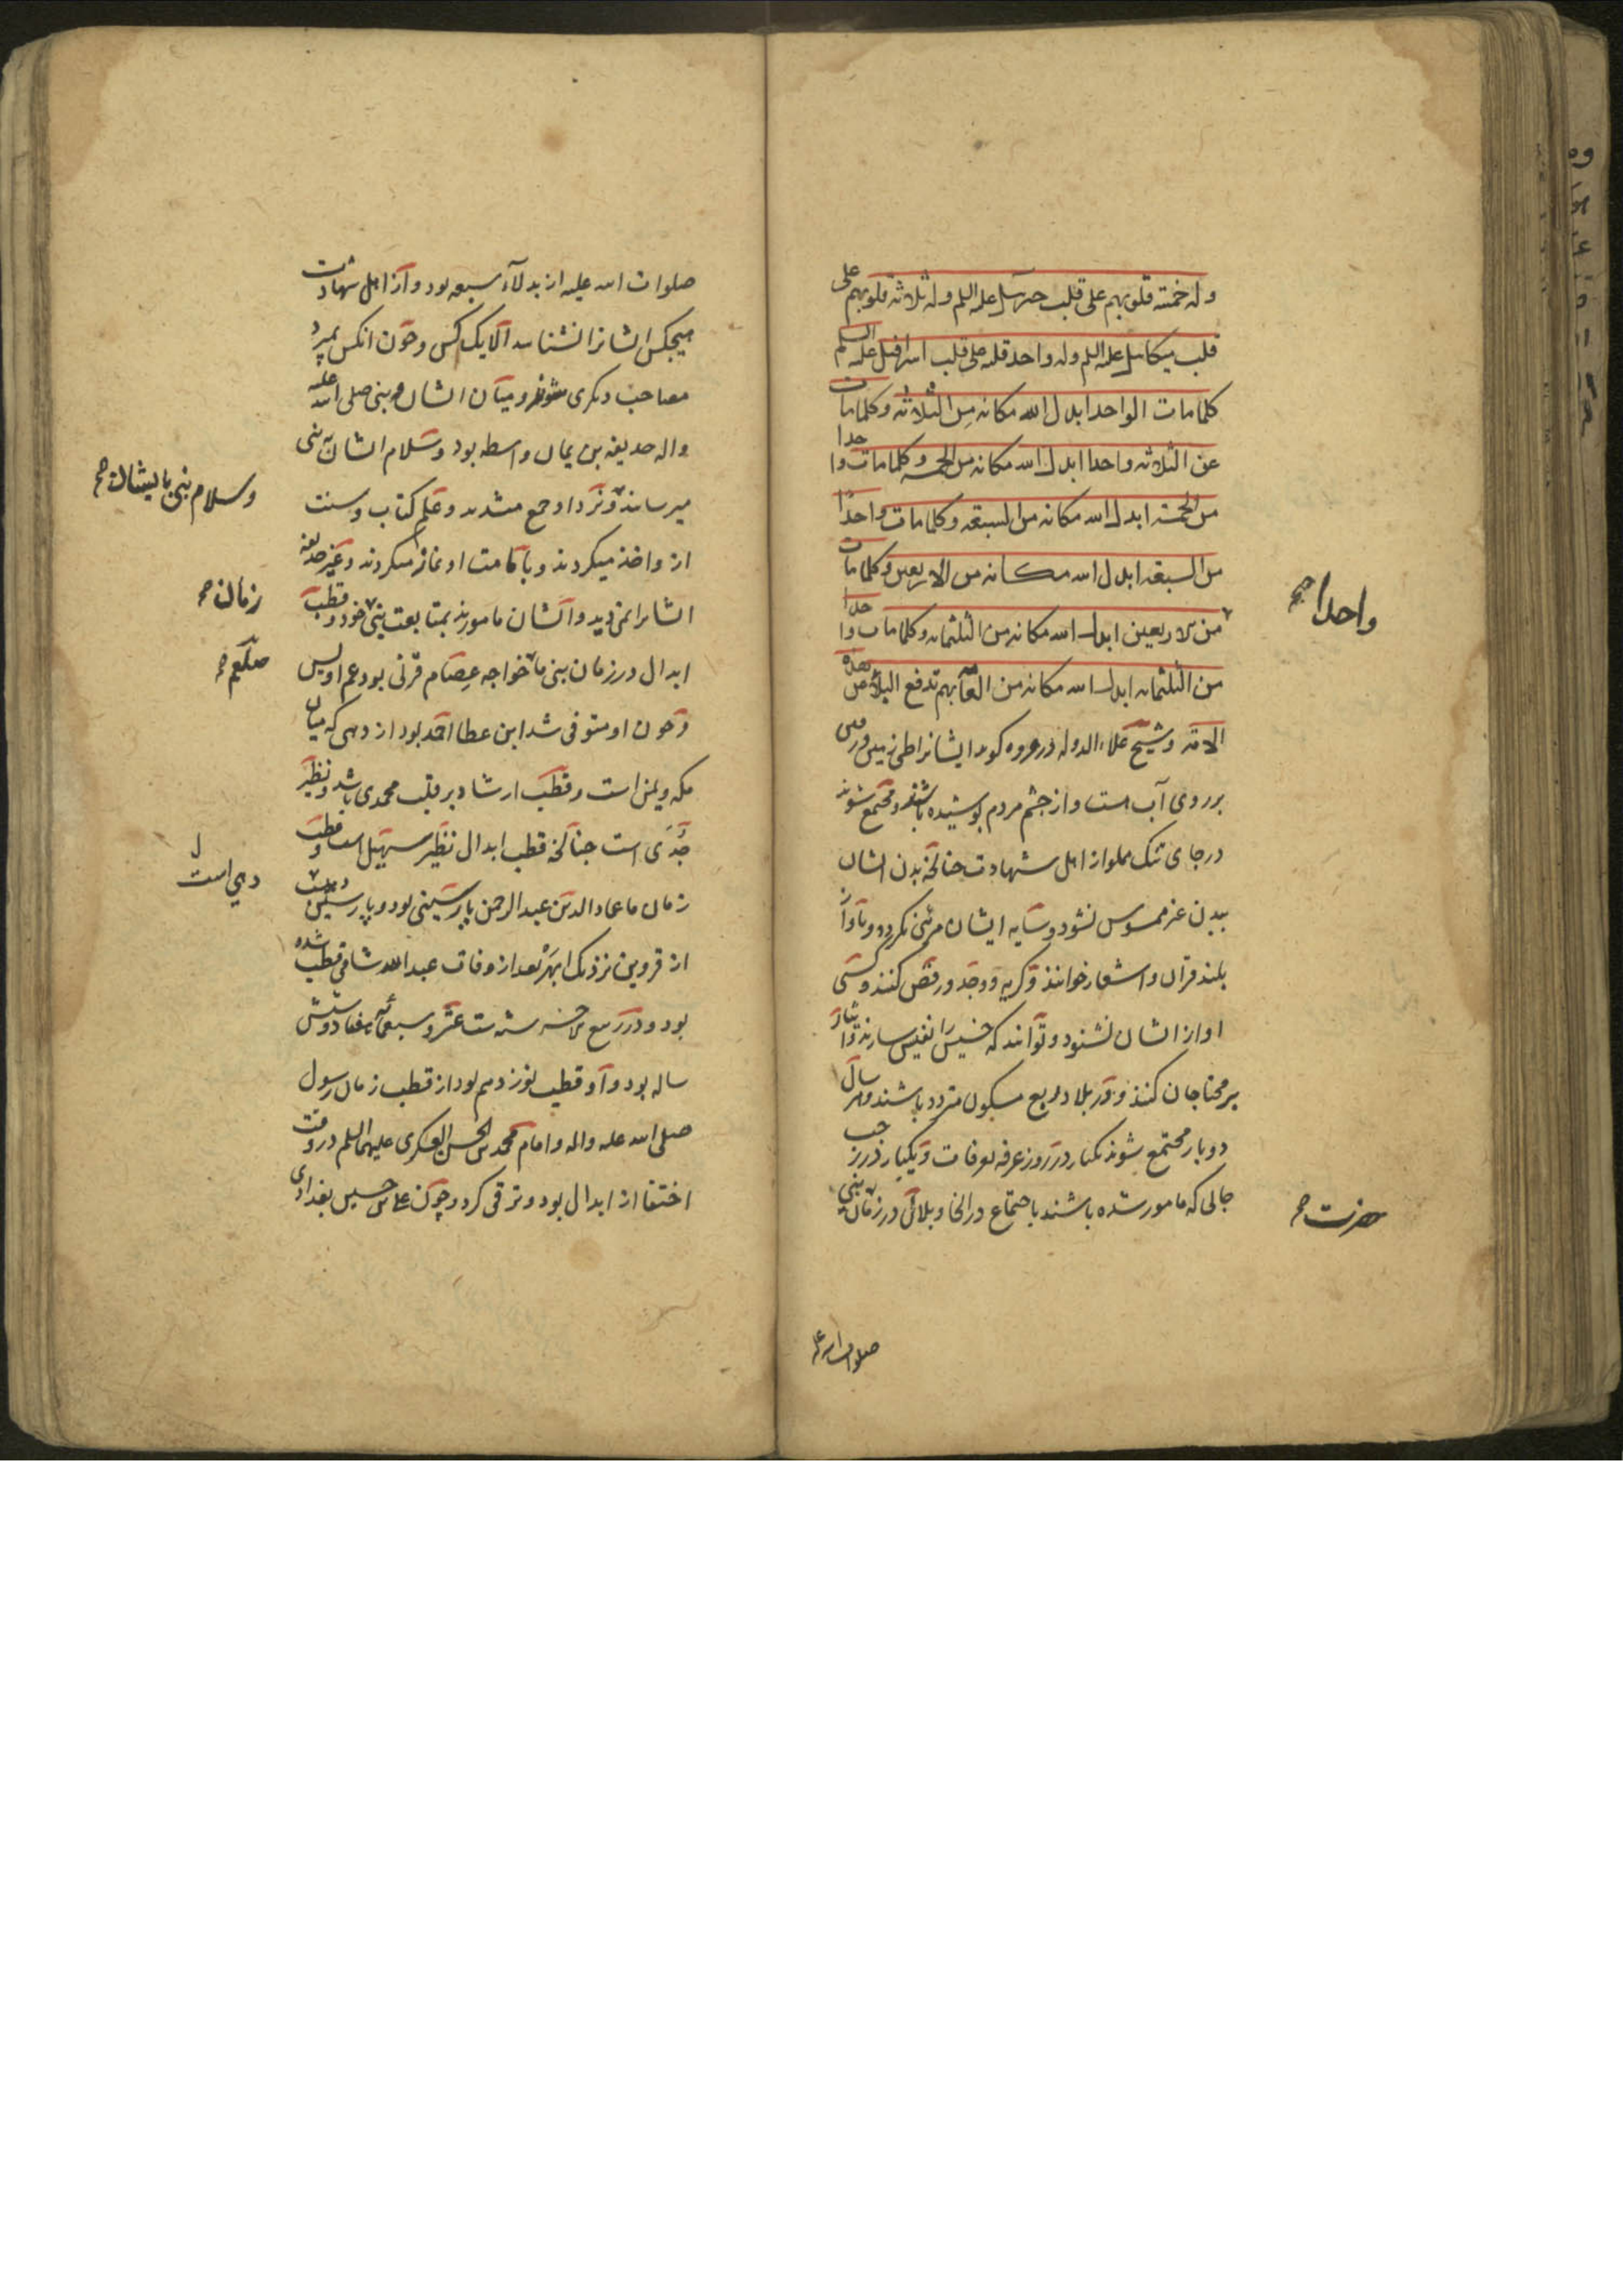 وله خمسة قلوبهم علی قلب جبرئیل علیه السلم وله ثلاثة قلوبهم علی
قلب میکائیل علیه السلم وله واحد قلبه علی قلب اسرافیل علیه السلم
کلما مات الواحد ابدل الله مکانه من الثلاثة وکلما مات
من الثلاثه واحدا ابدل الله مکانه من الخمسه وکلما مات واحدا
من الخمسة ابدل الله مکانه من السبعه وکلما مات واحدا
من السبعه ابدل الله مکانه من الاربعین وکلما مات
من الاربعین ابدل الله مکانه من الثلثمائه وکلما مات واحدا
واحدا صح
من الثلثمائه ابدل الله مکانه من العامه بهم تدفع البلاء عن هذه
الامة وشیخ علاء الدوله در عروه کوید ایشانرا طی زمین ورفتن
بر روی آب است و از جشم مردم پوشیده باشند و مجتمع شوند
در جای تنک مملو از اهل شهادت جنانکه بدن ایشان
ببدن غیر ممسوس نشود و سایه ایشان مرئی نکردد و بآواز
بلند قرآن و اشعار خوانند و کریه و وجد و رقص کنند و کسی
اواز ایشان نشنود و توانند که خسیس را نفیس سازند و ایثار
بر محتاجان کنند و در بلاد و ربع مسکون متردد باشند و هر سال
دو بار مجتمع شوند یکبار در روز عرفه بعرفات و یکبار در رجب
جائی که مامور شده باشند باجتماع در انجا و بلائی در زمان نبی
حضرت صح
صلوات الله علیه
صلوات الله علیه از بدلآء سبعه بود و از اهل شهادت
هیجکس ایشانرا نشناسد الا یک کس و جون انکس بمیرد
مصاحب دیکری شوند و میان ایشان و نبی صلی الله علیه
واله حدیفه بن یمان واسطه بود و سلام ایشان به نبی
میرسانید و نزد او جمع میشدند و علم کتاب و سنت
وسلام نبی بایشان صح
از و اخذ میکردند و باقامت او نماز میکردند و غیر حدیفه
ایشانرا نمی دید و ایشان مامورند بمتابعت نبی خود و قطب
زمان صح
ابدال در زمان نبی ما خواجه عصام قرنی بود عم اویس
صلعم صح
و جون او متوفی شد ابن عطا احمد بود از دهی که میان
مکه و یمن است و قطب ارشاد بر قلب محمدی باشد و نظیر
جدی است جنانکه قطب ابدال نظیر سهیل است و قطب
زمان ما عماد الدین عبد الرحمن پارسینی بود و پارسین
دهی است
از قزوین نزدیک ابهر بعد از وفات عبد الله شامی قطب شده
بود و در ربیع الاخر سنه ست عشر و سبعمائه هفتاد و شش
ساله بود و او قطب نوزدهم بود از قطب زمان رسول
صلی الله علیه واله و امام محمد بن الحسن العسکری علیهما السلم در وقت
اختفا از ابدال بود و ترقی کرد و جون علی بن حسین بغدادی